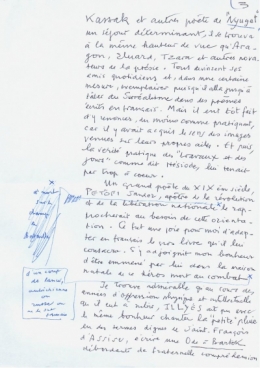 (3
Kassak et autres poètes de "Nyugat",
un séjour déterminant, il se trouva
à la même hauteur de vue qu'Ara-
gon, Eluard, Tzara et autres nova-
teurs de la poésie. Tout
quotidiens et, dans une certaine
jusqu'à
Surréalisme dans des poèmes
écrits en français. Mais il eut tôt fait
d'y renoncer, au moins comme pratiquant,
car il y avait acquis le sens des images
venues sur leurs propres ailes. Et puis,
la vérité pratique des "travaux et des
jours" comme dit Hésiode, lui tenait
par trop à coeur.
Un grand poète du XIXème siècle,
Petöfi Sandor, apôtre de la révolution
et de la libération nationale le rap-
procherait au besoin de cette orienta-
tion. Ce fut une joie pour moi d'adap-
ter en français le livre qu'il lui
consacra. S'y adjoignit mon bonheur
d'être emmené par lui dans la maison
natale de ce héros mort au combat.
Je trouve admirable qu'au cours des
années d'oppression physique et intellectuelle
qu'il eut à subir, Illyés ait pu avec
le même bonheur chanter la petite pluie
en des termes dignes de Saint François
d'Assise, écrire une Ode à Bartok
débordante de fraternelle compréhension
d'un coup
de lance,